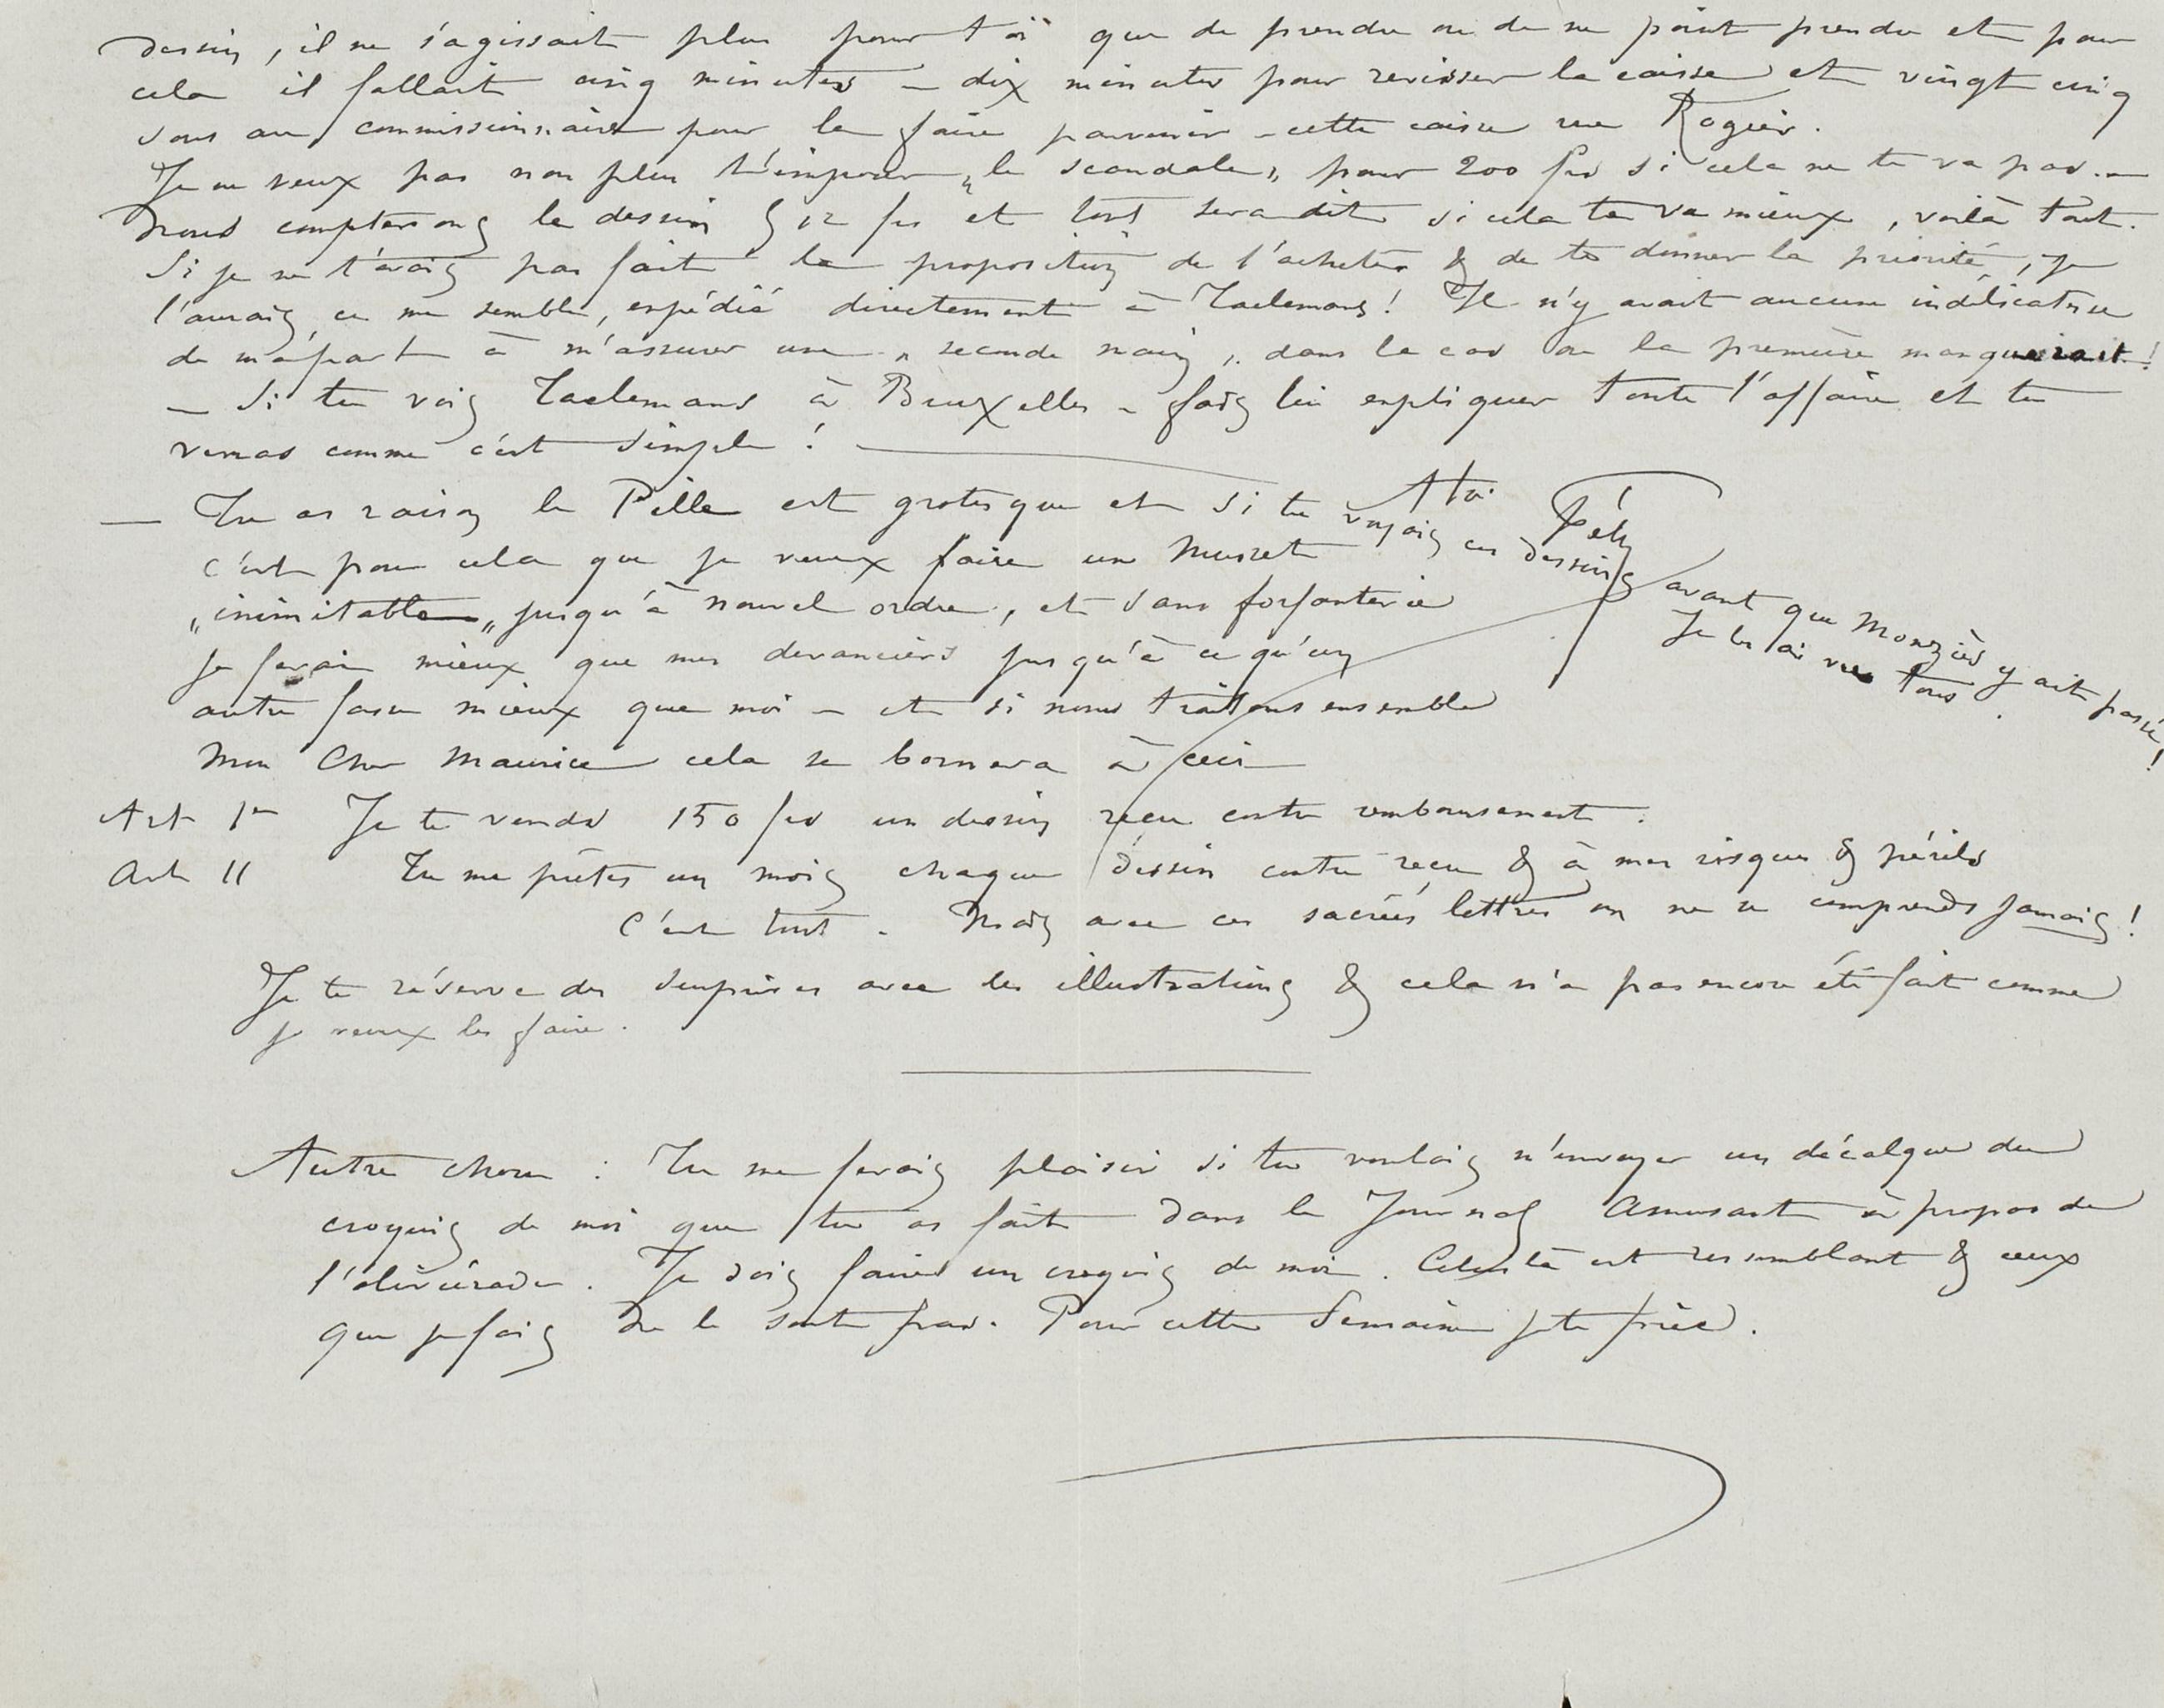 dessin, il ne s'agissait plus pour toi que de prendre ou de ne point prendre et pour
cela il fallait cinq minutes – dix minutes pour revisser la caisse et vingt cinq
sous au commissionnaire pour la faire parvenir – cette caisse rue Rogier.
Je ne veux pas non plus t'imposer „le scandale„ pour 200 frs si cela ne te va pas. –
nous compterons le dessin frs et tout sera dit si cela te va mieux, voilà tout.
Si je ne t'avais pas fait la proposition de l'acheter & de te donner la priorité, je
l'aurais, ce me semble, expédié directement à Taelemans! Il n'y avait aucune indélicatesse
de ma part à m'assurer une „seconde main„ dans le cas où la première manquerait!
– Si tu vois Taelemans à Bruxelles – fais lui expliquer toute l'affaire et tu
verras comme c'est simple!
A toi
Fély
— Tu as raison le Pille est grotesque et si tu voyais ces dessins avant que Monziès y ait passé!
Je les ai vus tous.
c'est pour cela que je veux faire un Musset
„inimitable„ jusqu'à nouvel ordre, et sans forfanterie
je ferai mieux que mes devanciers jusqu'à ce qu'un
autre fasse mieux que moi – et si nous traitons ensemble
mon cher Maurice cela se bornera à ceci
Art 1er Je te vends 150 frs un dessin reçu contre remboursement.
Art II Tu me prêtes un mois chaque dessin contre reçu & à mes risques & périls
C'est tout. Mais avec ces sacrées lettres on ne se comprends jamais!
Je te réserve des surprises avec les illustrations & cela n'a pas encore été fait comme
je veux les faire.
Autre chose : Tu me ferais plaisir si tu voulais m'envoyer un décalque du
croquis de moi que tu as fait dans le Journal Amusant à propos de
l'oliviérade. Je dois faire un croquis de moi. Celui là est ressemblant & ceux
que je fais ne le sont pas. Pour cette semaine je te prie.